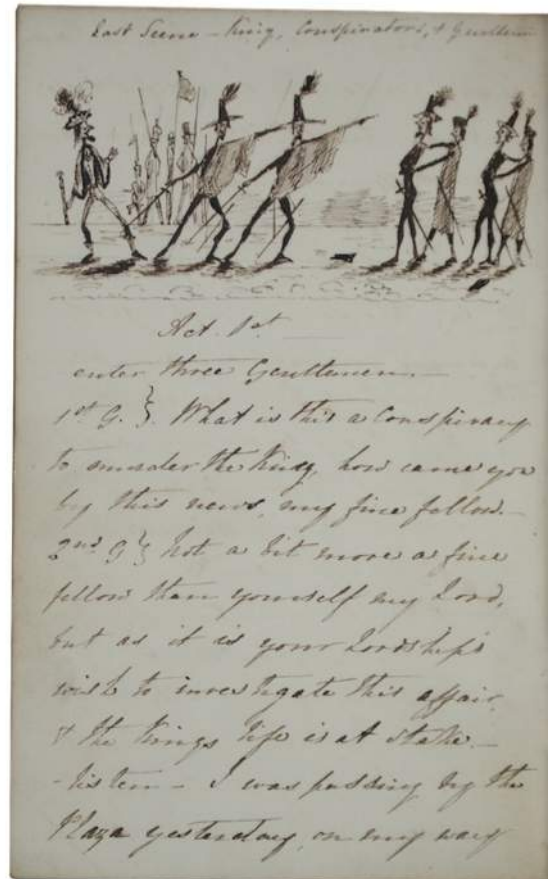 Last Scene – King, Conspirators, & Gentlemen
Act. 1st
enter three Gentlemen.–
1st G. }. What is this a Conspiracy
to murder the King, how came you
by this news, my fine fellow.–
2nd G } Not a bit more a fine
fellow than yourself my Lord,
but as it is your Lordship's
wish to investigate this affair,
& the Kings life is at stake.–
– listen – I was passing by the
Plaza yesterday, on my way